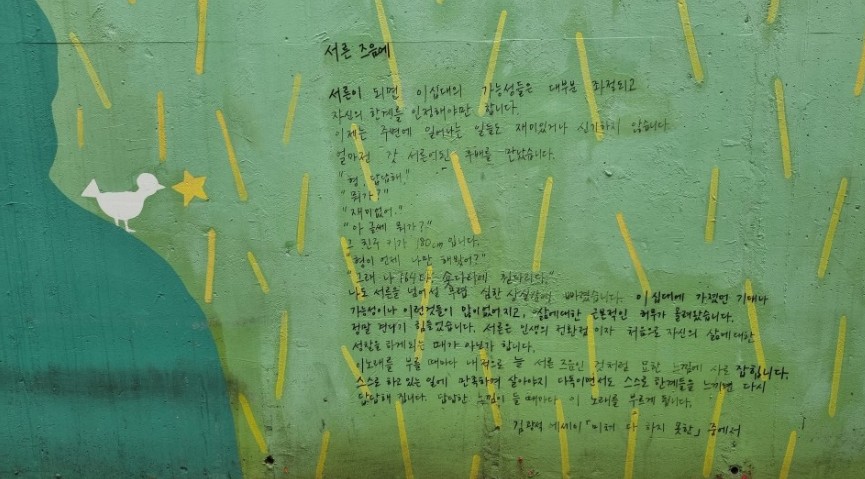 서른 즈음에
서른이 되면 이십대의 가능성들은 대부분 좌절되고
자신의 한계를 인정해야만 합니다.
이제는 주변에 일어나는 일들도 재미있거나 신기하지 않습니다.
얼마전 갓 서른이된 후배를 만났습니다.
"형, 답답해."
"뭐가?"
"재미없어."
"아 글쎄 뭐가?"
그 친구 키가 180cm입니다.
"형이 언제 나만 해봤어?"
"그래 나 164다.
나도 서른을 넘어설 무렵 심한 상실감에 빠졌습니다. 이십대에 가졌던 기대나
가능성이나 이런것들이 많이없어지고, 삶에대한 근본적인 허무가 몰려왔습니다.
정말 견디기 힘들었습니다. 서른은 인생의 전환점이자 처음으로 자신의 삶에대한
성찰을 하게되는 때가 아닌가 합니다.
이노래를 부를 때마다 내적으로 늘 서른 즈음인 것처럼 묘한 느낌에 사로잡힙니다.
스스로 하고 있는 일에 만족하며 살아야지 다독이면서도 스스로 한계들을 느끼면 다시
답답해 집니다. 답답한 느낌이 들 때마다 이 노래를 부르게 됩니다.
김광석 에세이「미처 다 하지 못한」중에서